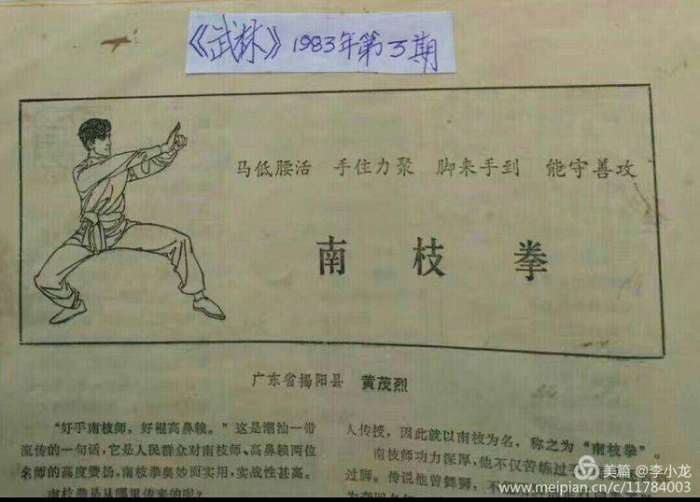 《武林》1983年第3期
马低腰活 手住力聚 脚来手到 能守善攻
南枝拳
广东省揭阳县 黄茂烈
“好乎南枝师，好褪高鼻赖。”这是潮汕一带
流传的一句话，它是人民群众对南枝师、高鼻赖两位
名师的高度赞扬。南枝拳奥妙而实用，实战性甚高。
南枝拳是从哪里传来的呢？
人传授，因此就以南枝为名，称之为“南枝拳”。
南枝师功力深厚，他不仅苦练过
过脚。传说他曾舞狮，不
美篇 @李小龙
www.meipian.cn/c/11784003